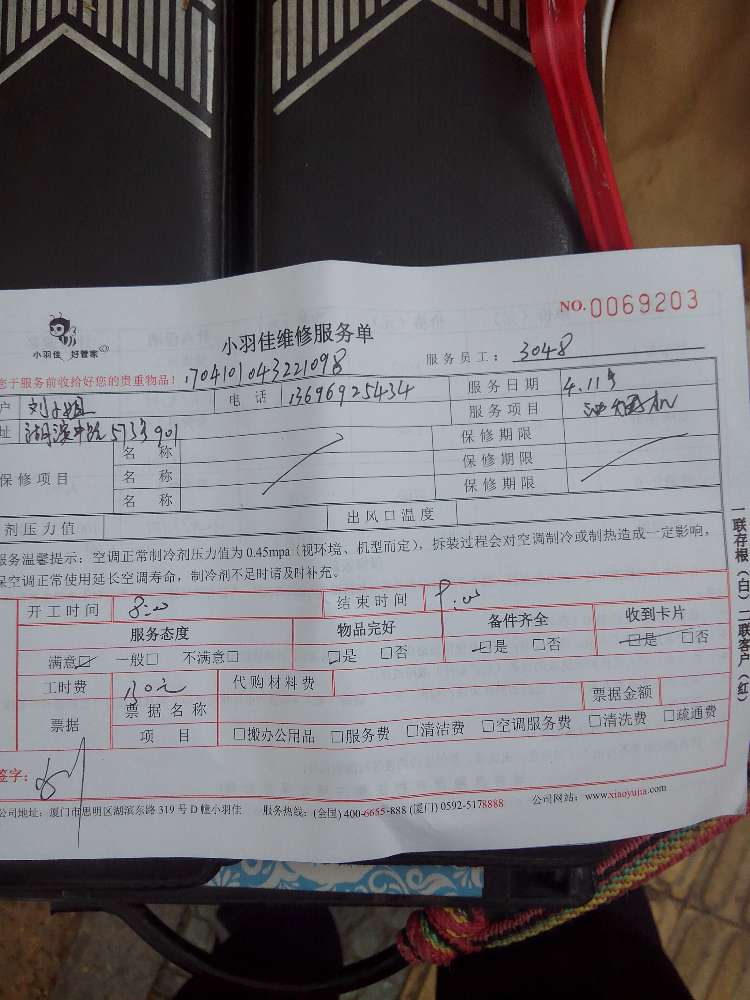 NO.0069203
小羽佳 好管家
小羽佳维修服务单
服务员工：3048
您于服务前收给好您的贵重物品！1704101043221098
户 刘小姐 电话 13696925434 服务日期 4.11号
址 湖滨中路573号901 服务项目
保修项目 名称 保修期限
名称 保修期限
名称 保修期限
剂压力值 出风口温度
服务温馨提示：空调正常制冷剂压力值为0.45mpa（视环境、机型而定），拆装过程会对空调制冷或制热造成一定影响，
保空调正常使用延长空调寿命，制冷剂不足时请及时补充。
开工时间 8:00 结束时间 9:00
服务态度 物品完好 备件齐全 收到卡片
满意☑ 一般□ 不满意□ □是 □否 □是 □否 □是 □否
工时费 130元 代购材料费
票据 票据名称 票据金额
项目 □搬办公用品 □服务费 □清洁费 □空调服务费 □清洗费 □疏通费
签字：
公司地址：厦门市思明区湖滨东路319号D幢小羽佳 服务热线：(全国) 400-6655-888 (厦门) 0592-5178888 公司网站：www.xiaoyujia.com
一联存根（白）二联客户（红）